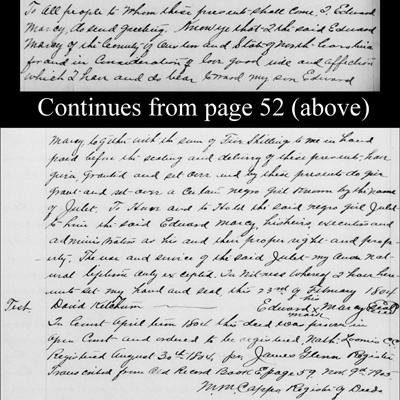 To All people to Whom these present shall come I Edward
Marcy, do send greeting. Know ye that I the said Edward
Marcy of the County of Camden and State of North Carolina
for and in Consideration of love good will and affection
which I have and do bear toward my son Edward
Continues from page 52 (above)
Marcy together with the sum of Five Shillings to me in hand
paid before the sealing and delivery of these presents have
given, granted and set over and by these presents do give
grant and set over a certain negro girl known by the name
of Julet. To Have and to Hold the said negro girl Julet
to him the said Edward Marcy, his heirs, executors and
administrators as his and their proper right and prop-
erty. The use and service of the said Julet my own nat-
ural lifetime only excepted. In Witness Whereof I have here-
unto set my hand and seal this 23rd of February 1804
his
Test. David Ketchum Edward x Marcy (Seal)
mark
In Court April term 1804 this deed was proven in
open Court and ordered to be registered. Nath. Loomis C.C.
Registered August 30th 1804, per James Glenn Register
Transcribed from Old Record Book E, page 59, Nov. 9th, 1905
M.M. Cappa Register of Deeds